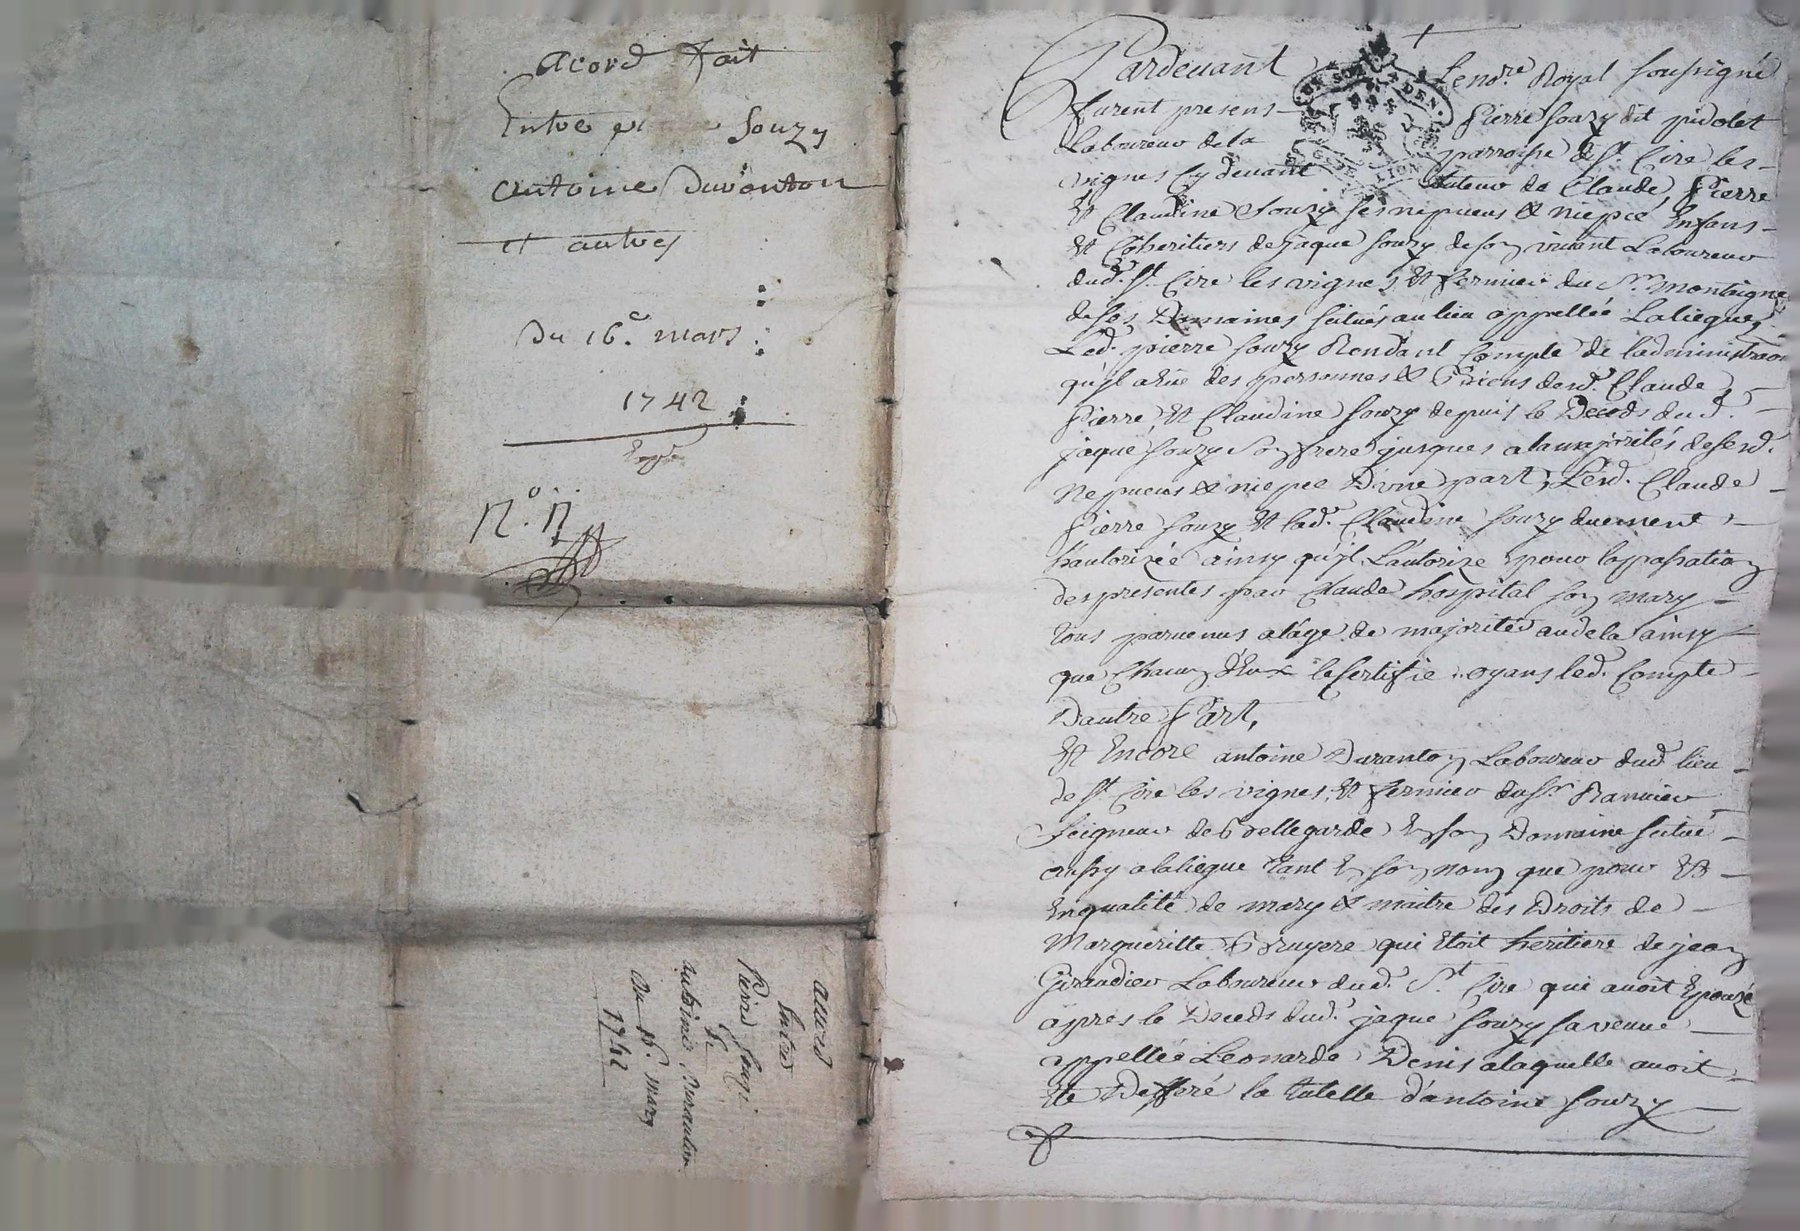 Acord fait
Entre Souzy
antoine Duranton
et autres
Du 16e. mars
1742
n.º n
acord
Entre
Pierre Souzi
Et
antoine Duranton
du 16. mars
1742
Pardevant Le no.re Royal Soussigné
furent presens Pierre Souzy dit pidolet
Laboureur de la parroisse de St. Cire les
vignes Cy devant tuteur de Claude, Pierre
Et Claudine Souzy ses nepueus & niepce, Enfans
Et Coheritiers de jaque Souzy de son vivant Laboureur
dud. St. Cire les vignes Et fermier du Sr. Montaigne
de ses Domaines scitués au lieu appellée Laliegue,
Led. pierre Souzy Rendant Compte de ladministraon
qu'jl a hüe des personnes & Biens desd. Claude,
Pierre, Et Claudine Souzy depuis le Deceds dud.
jaque Souzy Son frere jusques a la majorités de sesd.
Nepueus & niepce D'une part, Lesd. Claude
Pierre Souzy Et lad. Claudine Souzy duement
hautorizée ainsy qu'jl L'autorize pour la passation
des presentes par Claude hospital son mary
tous parvenus a l'age de majorité au dela ainsy
que Chacun d'Eux le Sertifie oyans led. Compte
Dautre Part,
Et Encore antoine Duranton Laboureur dud. lieu
de St. Cire les vignes, Et fermier du Sr. Ranvier
Seigneur de Bellegarde En son Domaine scitué
aussy a laliegue tant En son nom que pour Et
En qualité de mary & maitre des Droits de
Margueritte Bruyere qui Etoit heritiere de jean
Giraudier Laboureur dud. St. Cire qui avoit Epouzé
apres le Deceds dud. jaque Souzy sa veuve
appellée Leonarde Denis a laquelle avoit
Ete Defferé la tutelle d'antoine Souzy